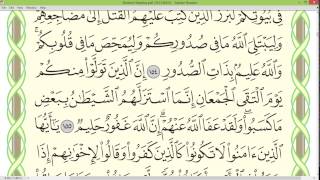 فِى بُيُوتِكُمْ لَبَرَزَ ٱلَّذِينَ كُتِبَ عَلَيْهِمُ ٱلْقَتْلُ إِلَىٰ مَضَاجِعِهِمْ
وَلِيَبْتَلِىَ ٱللَّهُ مَا فِى صُدُورِكُمْ وَلِيُمَحِّصَ مَا فِى قُلُوبِكُمْ ۗ
وَٱللَّهُ عَلِيمٌۢ بِذَاتِ ٱلصُّدُورِ ١٥٤ إِنَّ ٱلَّذِينَ تَوَلَّوْا۟ مِنكُمْ
يَوْمَ ٱلْتَقَى ٱلْجَمْعَانِ إِنَّمَا ٱسْتَزَلَّهُمُ ٱلشَّيْطَٰنُ بِبَعْضِ
مَا كَسَبُوا۟ ۖ وَلَقَدْ عَفَا ٱللَّهُ عَنْهُمْ ۗ إِنَّ ٱللَّهَ غَفُورٌ حَلِيمٌ ١٥٥ يَٰٓأَيُّهَا
ٱلَّذِينَ ءَامَنُوا۟ لَا تَكُونُوا۟ كَٱلَّذِينَ كَفَرُوا۟ وَقَالُوا۟ لِإِخْوَٰنِهِمْ إِذَا